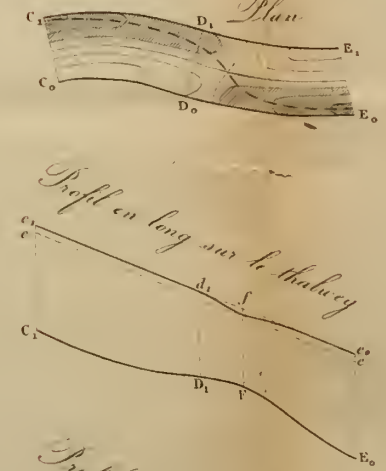 Plan
C₁ D₁ E₁
C₀ D₀ E₀
Profil en long sur le thalweg
c₁
c
d₁ f
e₀
e
C₁
D₁ F
E₀